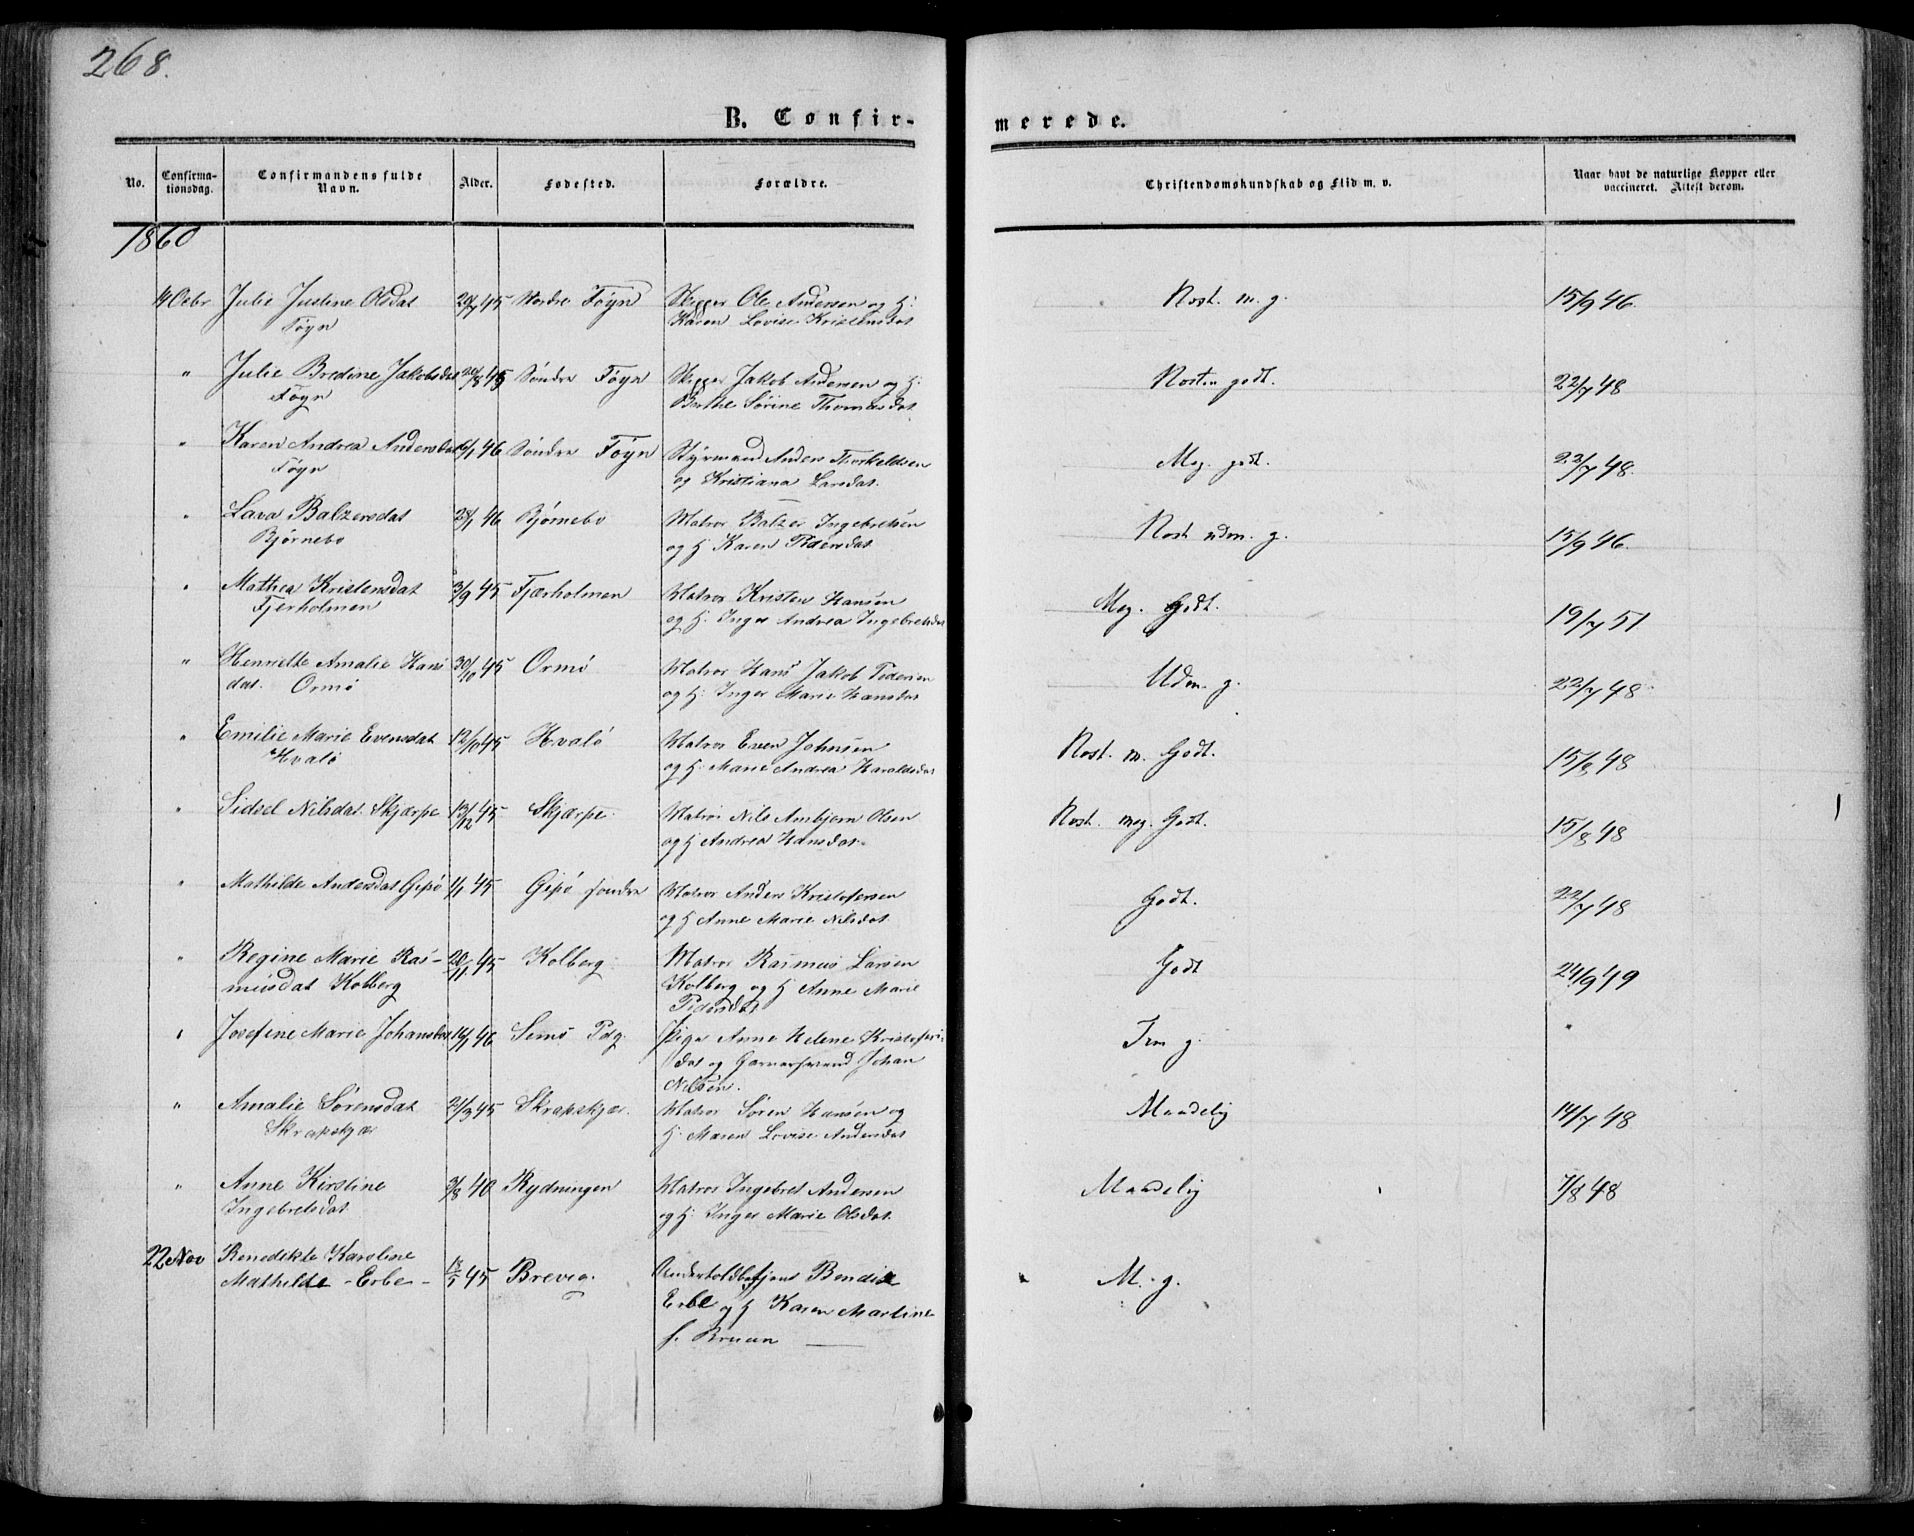 268.
B. Confir-
merede.
No.
Confirma-
tionsdag.
Confirmandens fulde
Navn.
Alder.
Fødested.
Forældre.
Christendomskundskab og Flid m. v.
Naar havt de naturlige Kopper eller
vaccineret. Attest derom.
1860
Octbr Julie Justine Olsdat 45 Nordre Föyn Skipper Ole Andersen og H: Nost. m. g. 15/9 46.
Föyn Karen Lovise Kristensdat
" Julie Bredine Jakobsdat 20/8 45 Söndre Föyn Skipper Jakob Andersen og H: Nosten godt. 22/7 48
Föyn Berthe Sörine Thomasdat
" Karen Andrea Andersdat 6/1 46 Söndre Föyn Styrmand Anders Thorkeldsen Meg. godt. 22/7 48.
Föyn og Kristiana Larsdat.
" Lava Balzersdat 46 Bjørnebo Matros Balzer Ingebretsen Nost udm. g. 15/9 46.
Bjørnebo og H Karen Pedersdat
" Mathea Kristensdat 3/9 45 Fjærholmen Matros Kristen Hansen Meg. Godt. 19/7 51
Fjerholmen og H. Inger Andrea Ingebretsdat
" Henriette Amalie Hans 30/10 45 Ormö Matros Hans Jakob Pedersen Udm. g. 22/7 48
dat. Ormø og H: Inger Marie Hansdat
" Emilie Marie Evensdat 12/10 45 Hvalö Matros Even Johnsen Nost. m. Godt. 15/8 48
Hvalø og H: Marie Andrea Haraldsdat
" Sidsel Nilsdat. Skjærpe 13/12 45 Skjærpe Matros Nils Ambjørn Olsen Nost. meg. Godt. 15/8 48
og H Andrea Hansdat.
" Mathilde Andersdat Gipö 1/1 45 Gipö söndre Matros Anders Kristofersen Godt. 22/7 48
og H Anne Marie Nilsdat
" Regine Marie Ras- 20/11 45 Kolberg Matros Rasmus Larsen Godt 24/9 49
musdat Kolberg Kolberg og H Anne Marie
Pedersdat
" Josefine Marie Johansdat 46 Semö Pdg. Pige Anne Helene Kristofers- Tem g. "
dat og Garversvend Johan
Nilsen.
" Amalie Sørensdat 21/3 45 Skrapskjær. Matros Søren Hansen og Maadelig 14/7 48
Skrapskjær H: Maren Lovise Andersdat
" Anne Kirstine 3/8 40 Rydningen Matros Ingebret Andersen Maadelig 7/8 48
Ingebretsdat og H: Inger Marie Olsdat.
22 Nov Benedikte Karoline
Mathilde - Erbe - 18/5 45 Brevig. Bendix M. g.
Erbe og H Karen Martine
f. Bruun